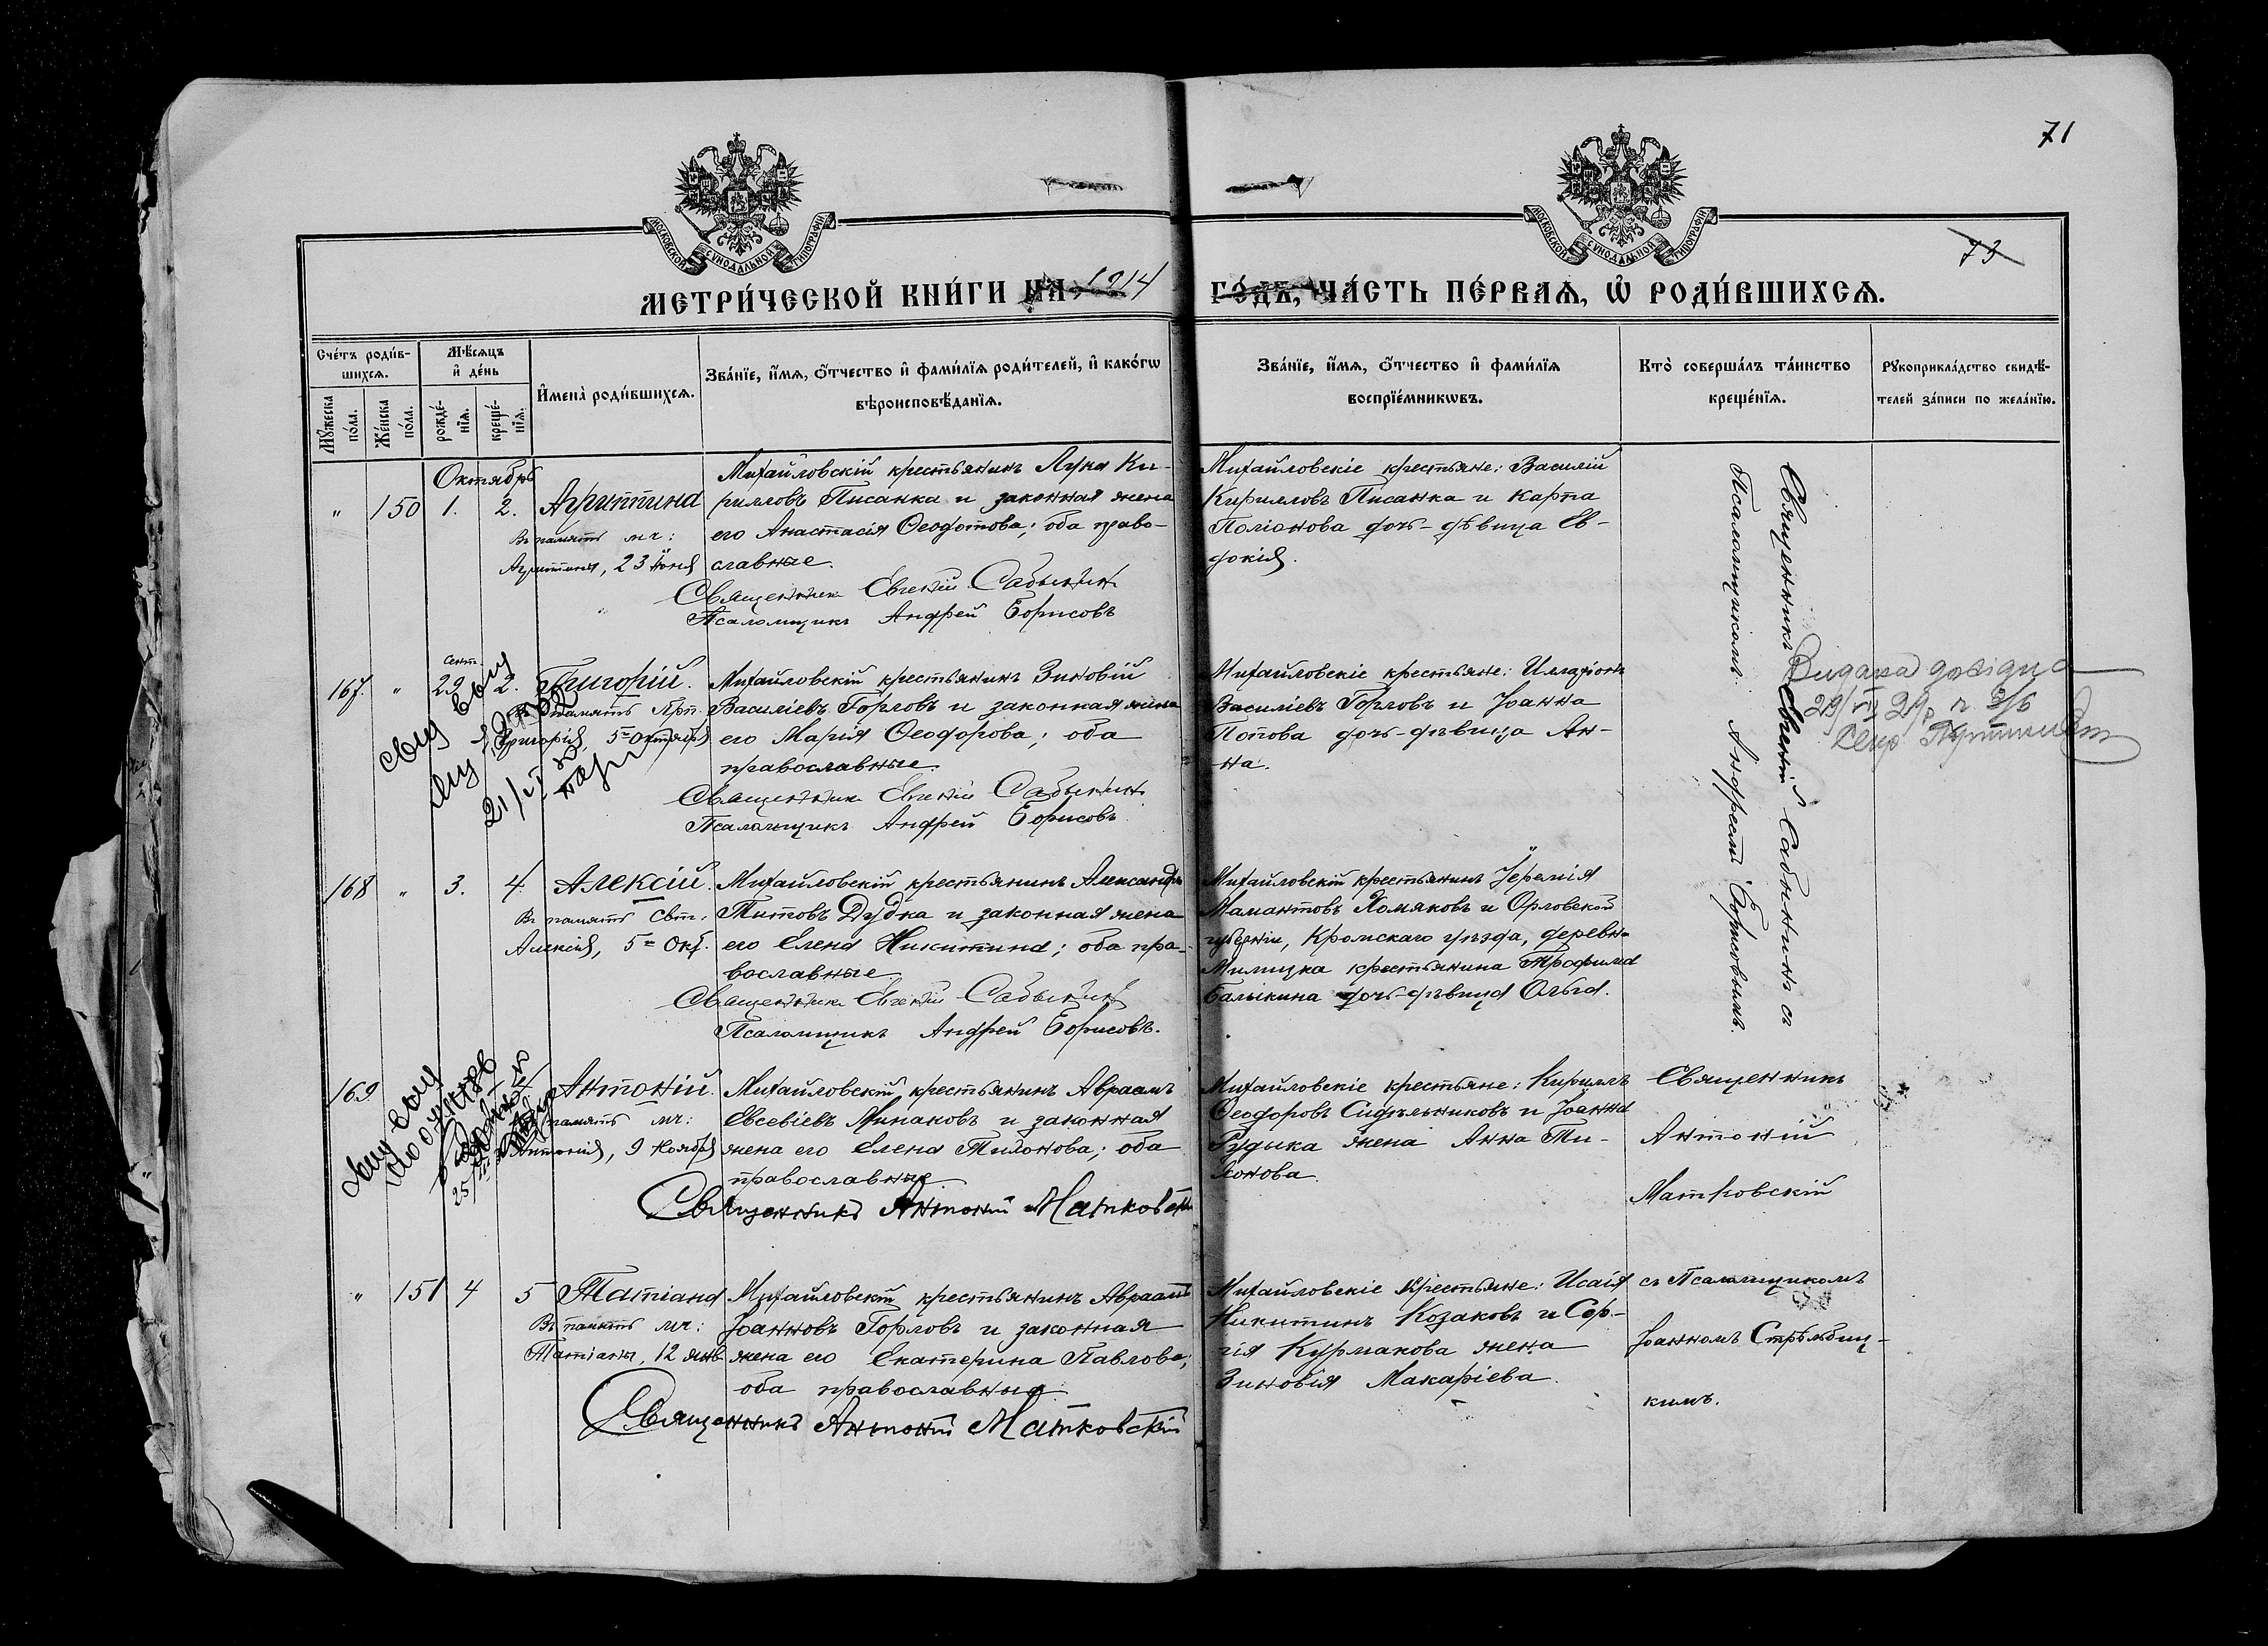 71
МОСКОВСКОЙ СУНОДАЛЬНОЙ ТИПОГРАФІИ
МОСКОВСКОЙ СУНОДАЛЬНОЙ ТИПОГРАФІИ
73
МЕТРИ́ЧЕСКОЙ КНИ́ГИ НА 1914 ГО́ДЪ, ЧА́СТЬ ПЕ́РВАѦ, Ѡ РОДИ́ВШИХСѦ.
Сче́тъ роди́в-
шихсѧ.
Мѣ́сѧцъ
и де́нь
Мꙋ́жеска
по́ла.
Же́нска
по́ла.
рожде́-
нїѧ.
креще́-
нїѧ.
Имена̀ роди́вшихсѧ.
Зва́нїе, и́мѧ, ѻ́тчество и фами́лїѧ роди́телей, и како́гѡ
вѣроисповѣ́данїѧ.
Зва́нїе, и́мѧ, ѻ́тчество и фами́лїѧ
воспрїе́мникѡвъ.
Кто̀ соверша́лъ та́инство
креще́нїѧ.
Рꙋкоприкла́дство свидѣ́-
телей за́писи по жела́нїю.
Октябрь
" 150 1. 2. Агриппина
Въ память мч:
Агриппины, 23 Іюня
Михайловскій крестьянинъ Лука Ки-
рилловъ Писанка и законная жена
его Анастасія Ѳеодотова; оба право-
славные.
Священникъ Евгеній Сабынин
Псаломщикъ Андрей Борисовъ
Михайловскіе крестьяне: Василій
Кирилловъ Писанка и Карпа
Поліонова дочь-дѣвица Ев-
докія.
Священникъ Евгеній Сабынинъ съ
Псаломщикомъ Андреемъ Борисовымъ.
167. " Сент. 29 2. Григорій.
Въ память
Григорія, 5= Октября
Михайловскій крестьянинъ Зиновій
Василіевъ Горловъ и законная жена
его Марія Ѳеодорова; оба
православные.
Священникъ Евгеній Сабынин
Псаломщикъ Андрей Борисовъ
Михайловскіе крестьяне: Илларіонъ
Василіевъ Горловъ и Іоанна
Попова дочь-дѣвица Ан-
на.
168 " 3. 4 Алексій.
Въ память Свт:
Алексія, 5= Окт.
Михайловскій крестьянинъ Александръ
Титовъ Дудка и законная жена
его Елена Никитина; оба пра-
вославные.
Священникъ Евгеній Сабынин
Псаломщикъ Андрей Борисовъ.
Михайловскій крестьянинъ Іеремія
Мамантовъ Хомяковъ и Орловской
губерніи, Кромскаго уѣзда, деревни
Милицка крестьянина Трофима
Балыкина дочь-дѣвица Ольга.
169 Антоній.
память мч:
Антонія, 9 Ноября
Михайловскій крестьянинъ Авраамъ
Евсевіевъ Минаковъ и законная
жена его Елена Тихонова; оба
православные
Священникъ Антоній Матковскій
Михайловскіе крестьяне: Кириллъ
Ѳеодоровъ Сидѣльниковъ и Іоанна
Рудыка жена Анна Ти-
хонова.
Священникъ
Антоній
Матковскій
" 151 4 5 Татіана
Въ память мч:
Татіаны, 12 янв
Михайловскій крестьянинъ Авраамъ
Іоанновъ Горловъ и законная
жена его Екатерина Павлова;
оба православные.
Священникъ Антоній Матковскій
Михайловскіе крестьяне: Исаія
Никитинъ Козаковъ и Сер-
гія Курмакова жена
Зиновія Макаріева.
съ Псаломщикомъ
Іоанномъ Стрѣльбиц-
кимъ.